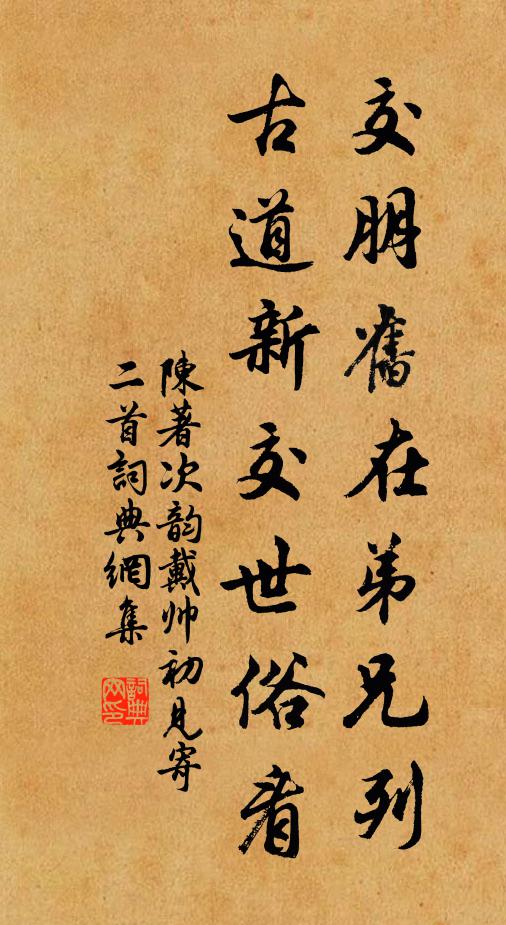 交朋舊在弟兄列
古道新交世俗看
陳著次韵戴帅初見寄
二首詞典網集
詞典
网印